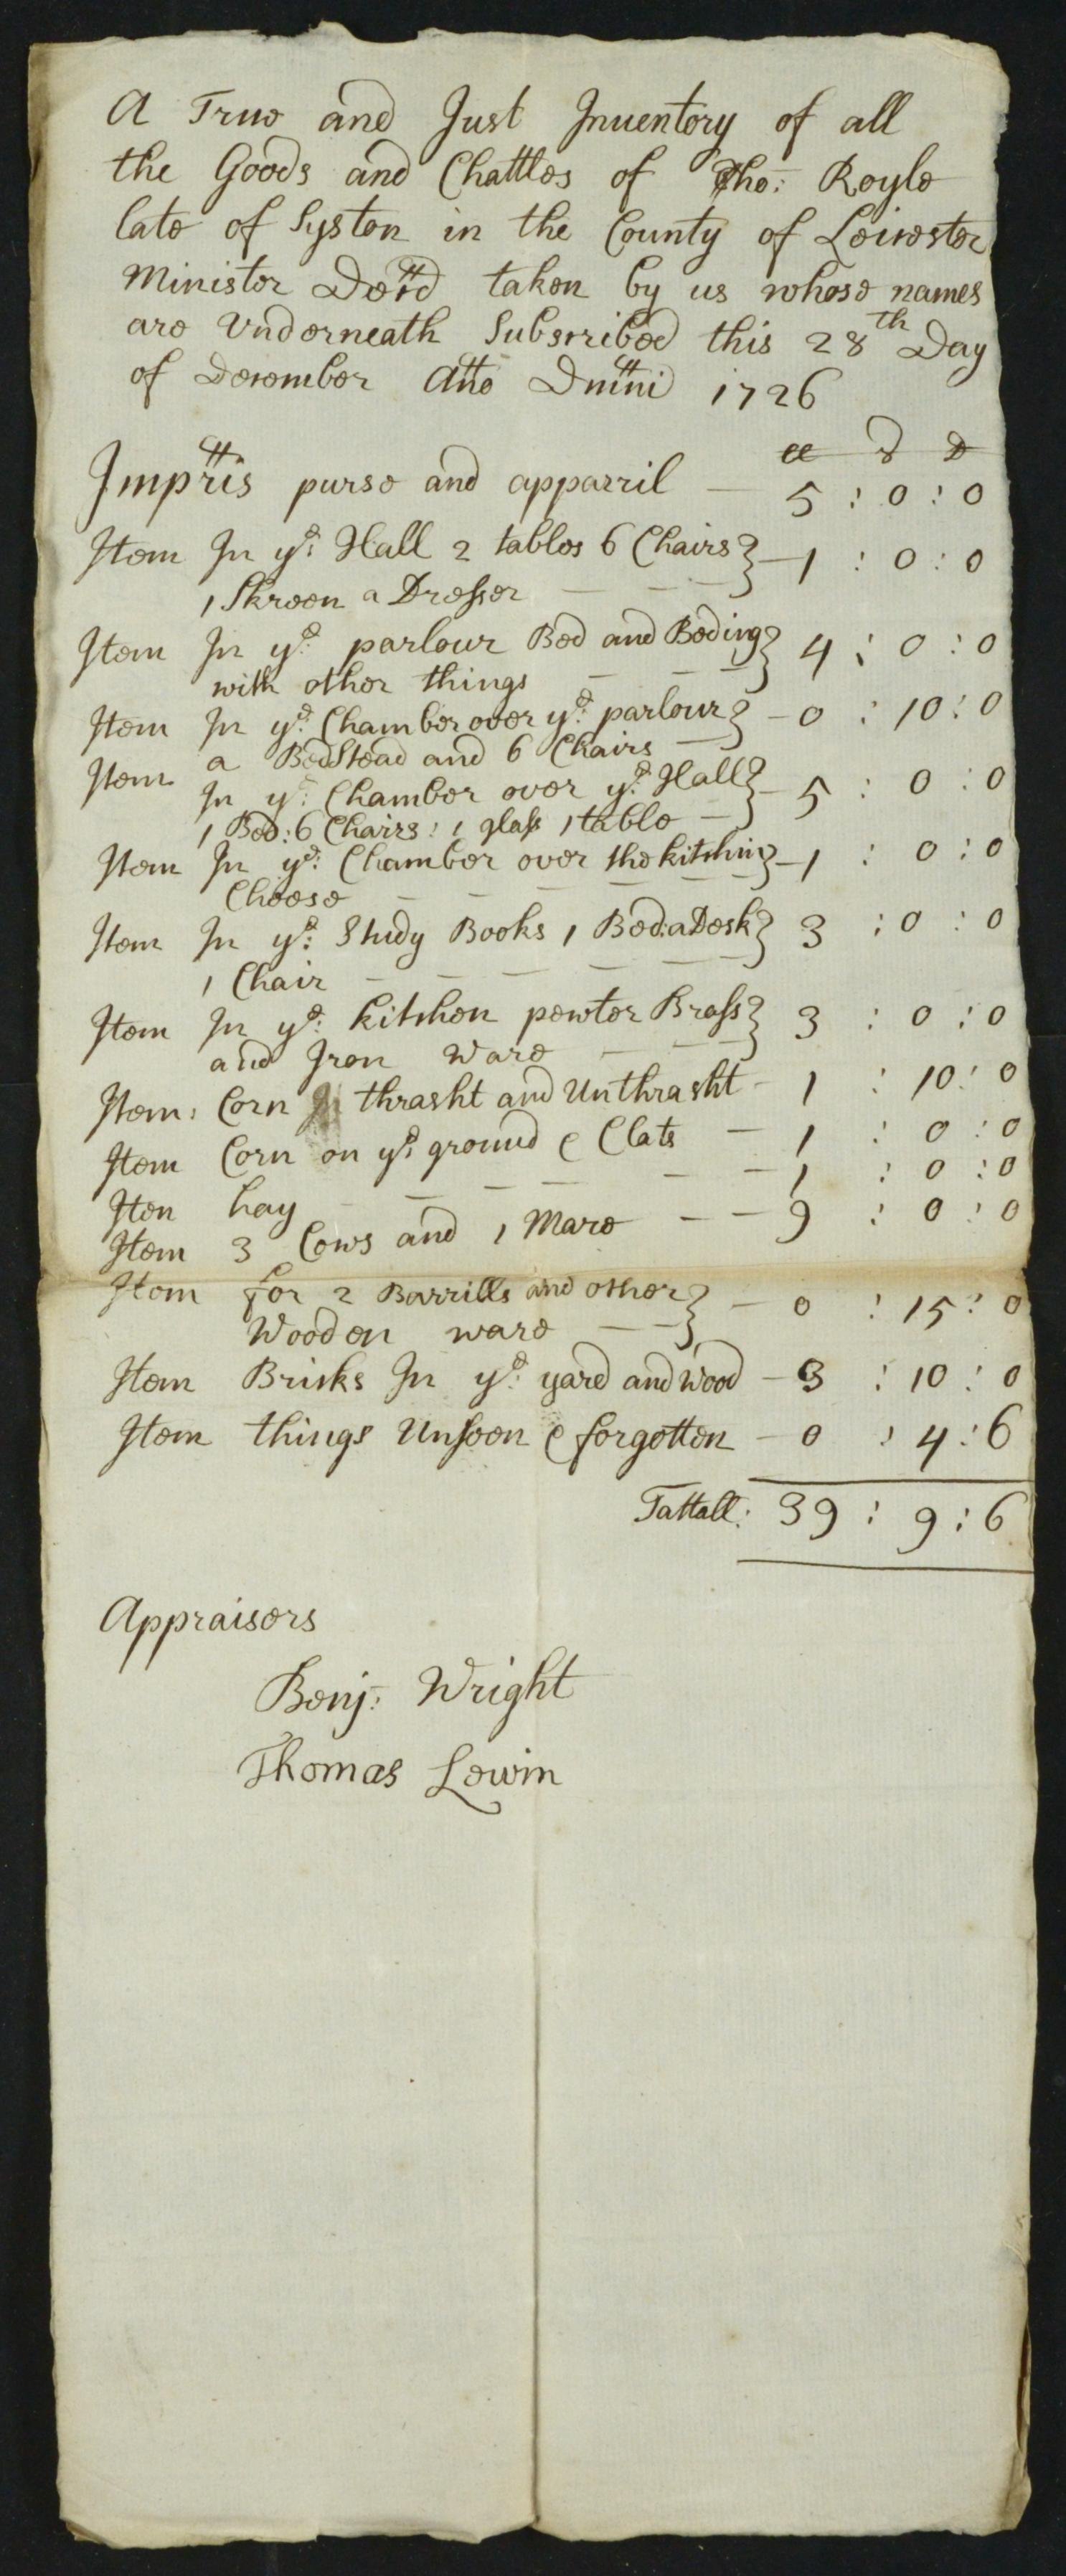 A True and Just Inuentory of all
the Goods and Chattles of Tho: Royle
late of Syston in the County of Leicester
Minister Decd taken by us whose names
are Vnderneath Subscribed this 28th Day
of December Ano Dmni 1726
ll s d
Impris purse and apparril — 5 : 0 : 0
Item In ye: Hall 2 tables 6 Chairs } — 1 : 0 : 0
1 Skreen a Dresser — — —
Item In ye: parlour Bed and Beding } 4 : 0 : 0
with other things — — —
Item In ye: Chamber over ye: parlour } — 0 : 10 : 0
a BedStead and 6 Chairs —
Item In ye: Chamber over ye: Hall } — 5 : 0 : 0
1 Bed: 6 Chairs: 1 glass 1 table —
Item In ye: Chamber over the kitchin } — 1 : 0 : 0
Cheese — — — — —
Item In ye: Study Books 1 Bed: a Desk } 3 : 0 : 0
1 Chair — — — — — —
Item In ye: kitchen pewter Brass } 3 : 0 : 0
and Iron Ware — — —
Item: Corn thrasht and Unthrasht — 1 : 10 : 0
Item Corn on ye: ground & Clats — 1 : 0 : 0
Iten hay — — — — — — 1 : 0 : 0
Item 3 Cows and 1 Mare — — 9 : 0 : 0
Item for 2 Barrills and other } — 0 : 15 : 0
Wooden ware — —
Item Bricks In ye: yard and Wood — 3 : 10 : 0
Item things Unseen & forgotten — 0 : 4 : 6
Tattall: 39 : 9 : 6
Appraisors
Benj: Wright
Thomas Lewin